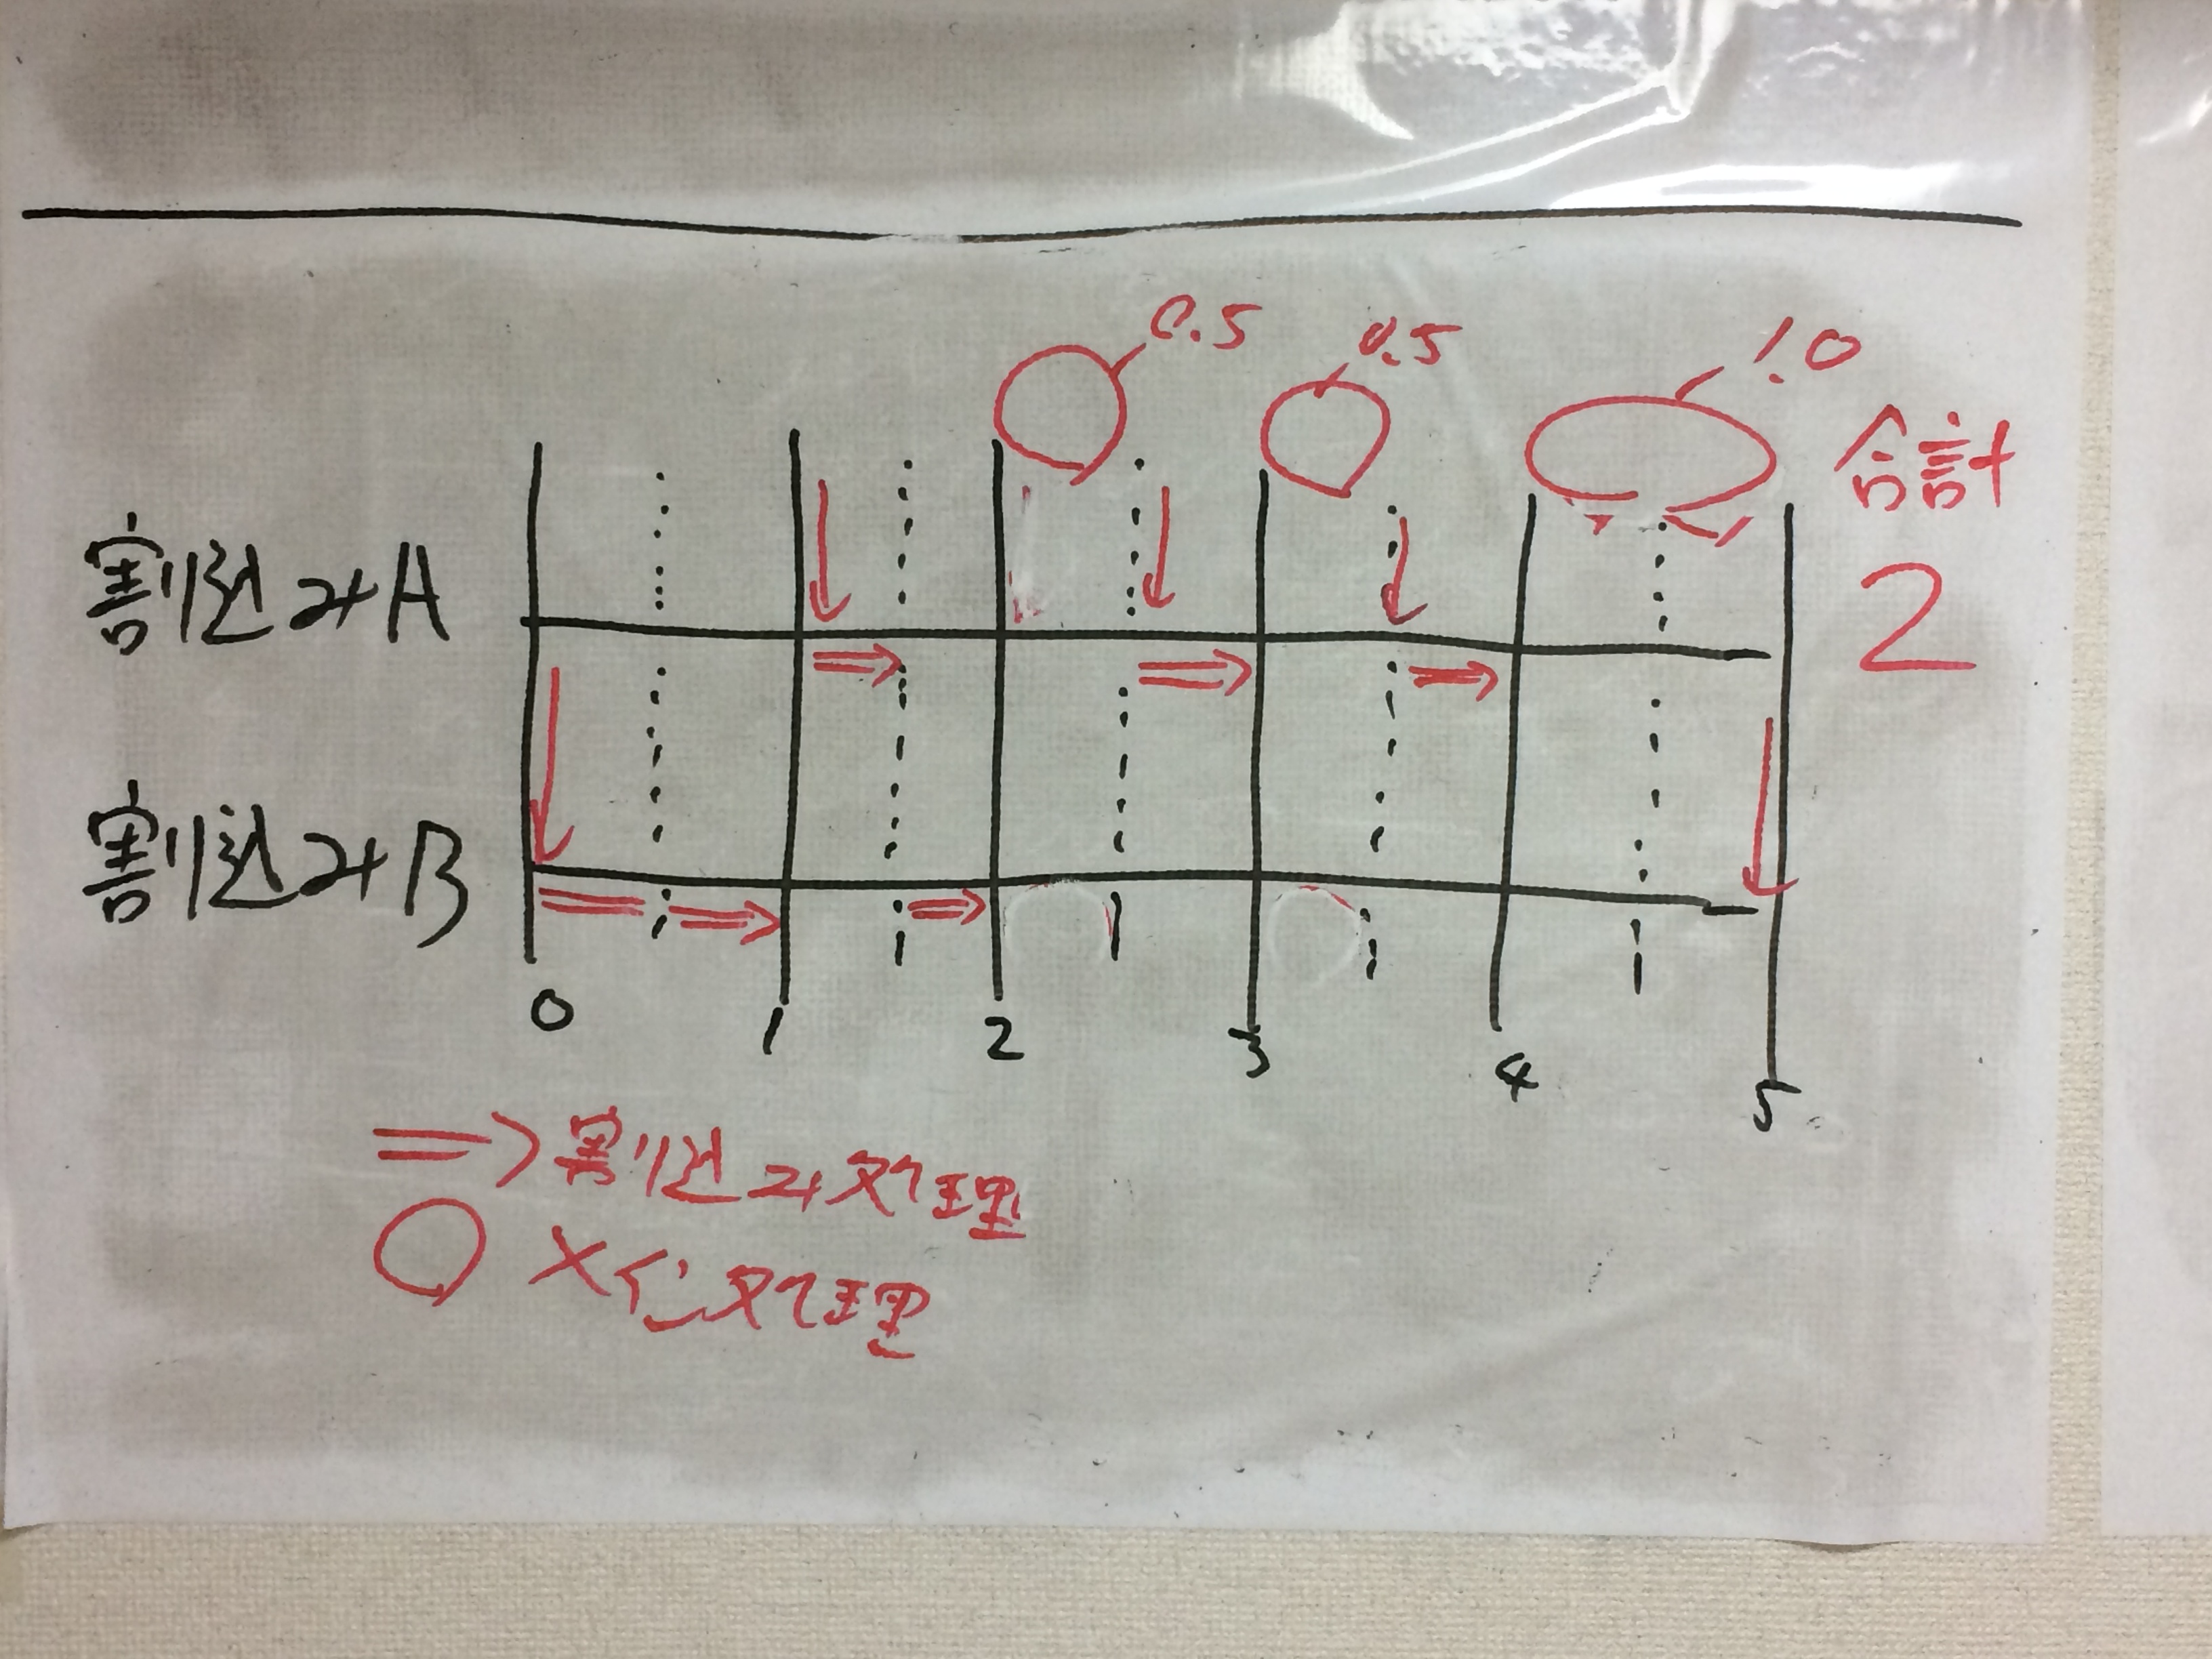 0.5
0.5
1.0
合計
2
割込みA
割込みB
0 1 2 3 4 5
⇒割込み処理
○ メイン処理